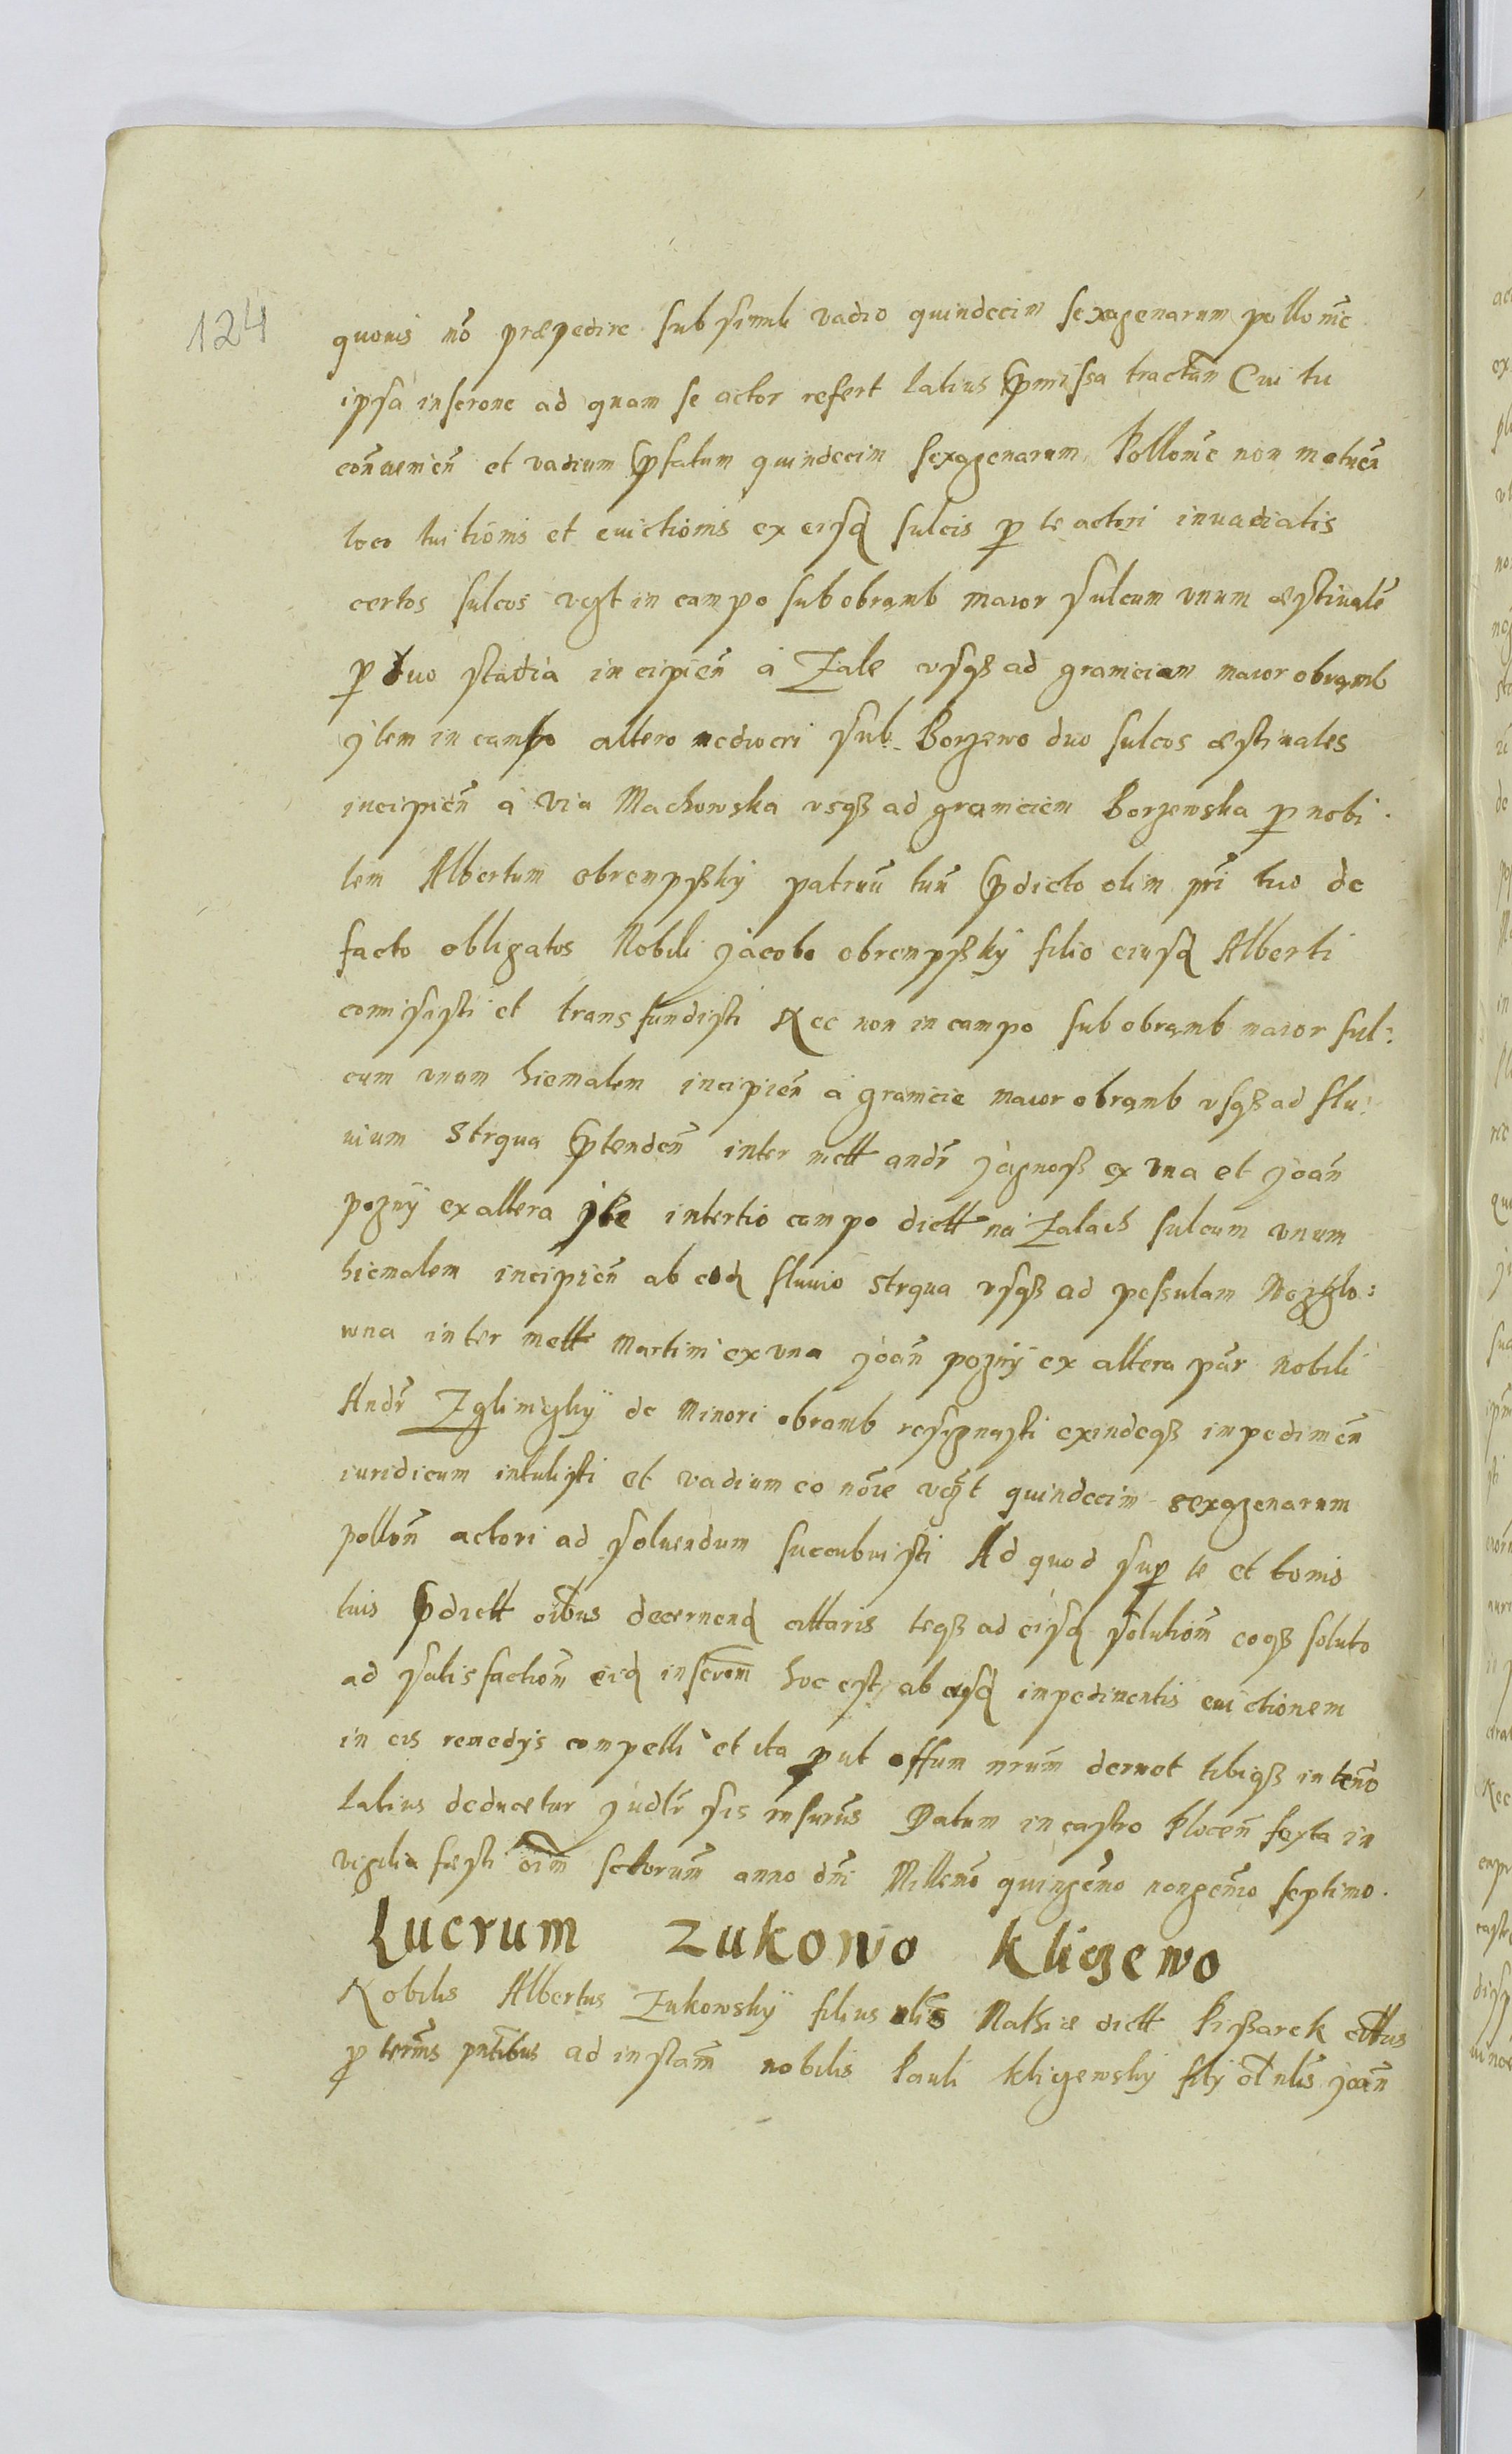 124
quouis nõ præpedire sub simili vadio quindecim sexagenarum polloñic
ipsa inscrone ad quam se actor refert latius p̃missa tractañ Cui tu
coñueniẽn et vadium p̃fatum quindecim sexagenarum Polloñic non metueñ
loco tuitionis et euictionis ex eisq sulcis p te actori inuadiatis
certos sulcos vȝt in campo sub obramb maior sulcum vnum æstiualẽ
p duo stadia incipieñ a Zale vsqȝ ad graniciam maior obramb
ytem in campo altero mediocri sub Borzewo duo sulcos æstiuales
incipieñ a via Machowska vsqȝ ad graniciem Borzewska p nobi
lem Albertum obrempsky patruũ tuũ p̃dicto olim pr̃i tuo de
facto obligatos Nobili Jacobo obrempsky filio eiusq Alberti
comisisti et transfundisti Nec non in campo sub obramb maior sul:
cum vnum hiemalem incipieñ a granicie maior obramb vsqȝ ad flu:
uium Strqua p̃tendeñ inter mett andr̃ Jagnosz ex vna et Joañ
pozny ex altera yte in tertio campo dictt na Zalach sulcum vnum
hiemalem incipieñ ab eodq fluuio Strqua vsqȝ ad pessulam
wna inter mett Martini ex vna Joañ pozny ex altera pãr nobili
Andr̃ Zglinicky de Minori obramb resignasti exindeqȝ impedimeñ
iuridicum intulisti et vadium eo nõie vȝt quindecim sexagenarum
polloñ actori ad soluendum succubuisti Ad quod sup te et bonis
tuis p̃dictt oĩbus decernenq cittaris teqȝ ad eisq solutioñ eoqȝ soluto
ad satisfactioñ eidq inscroñ hoc est ab eisq impedimentis euictionem
in eis remedys compelli et ita put offum nr̃um decreuet tibiqȝ in teño
latius deducetur Judtr̃ sis insurũs Datum in castro Plocen̄ sexta in
vigilia festi oĩm sctorum̃ anno dñi Milleñio quingeñio nongeñio septimo.
Lucrum Zukowo Kligewo
Nobilis Albertus Zukowsky filius nlis Mathiæ dictt Pissarek cittus
p termĩs pñtibus ad instañ nobilis Pauli Kligewsky fily ol nlis Joañ